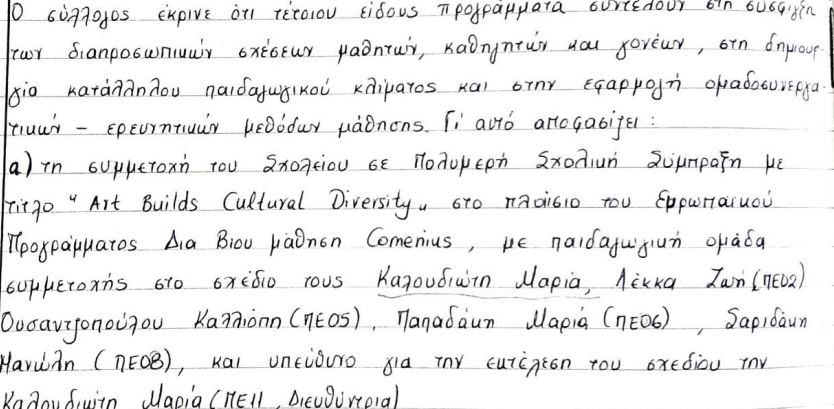 Ο σύλλογος έκρινε ότι τέτοιου είδους προγράμματα συντελούν στη σύσφιγξη
των διαπροσωπικών σχέσεων μαθητών, καθηγητών και γονέων, στη δημιουρ-
γία κατάλληλου παιδαγωγικού κλίματος και στην εφαρμογή ομαδοσυνεργα-
τικών - ερευνητικών μεθόδων μάθησης. Γι' αυτό αποφασίζει:
α) τη συμμετοχή του Σχολείου σε Πολυμερή Σχολική Σύμπραξη με
τίτλο " Art Builds Cultural Diversity„ στο πλαίσιο του Ευρωπαϊκού
Προγράμματος Δια Βίου μάθηση Comenius, με παιδαγωγική ομάδα
συμμετοχής στο σχέδιο τους Καλουδιώτη Μαρία, Λέκκα Ζωή (ΠΕ02)
Ουσαντζοπούλου Καλλιόπη (ΠΕ05), Παπαδάκη Μαρία (ΠΕ06), Σαριδάκη
Μανώλη (ΠΕ08), και υπεύθυνο για την εκτέλεση του σχεδίου την
Καλουδιώτη Μαρία (ΠΕ11, Διευθύντρια)